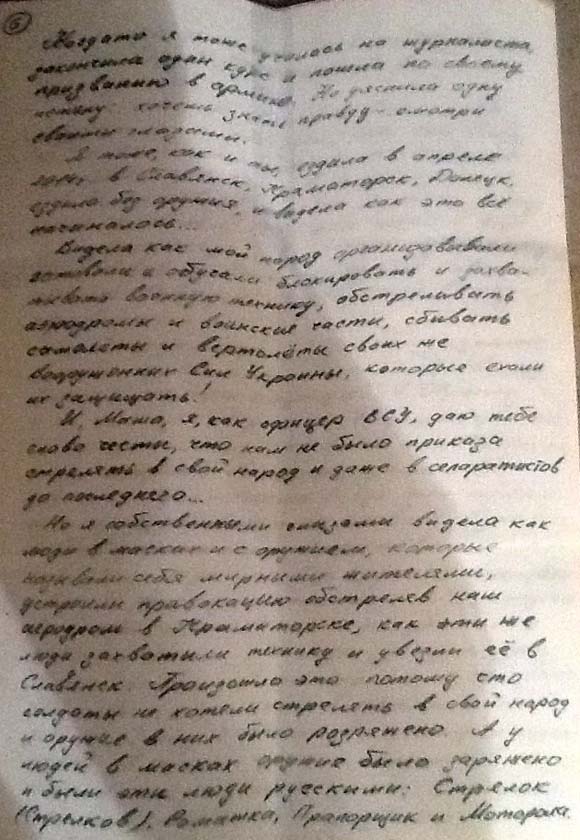 5
Когдато я тоже училась на журналиста,
закончила один курс и пошла по своему
призванию в армию. Но уяснила одну
истину: хочешь знать правду - смотри
своими глазами.
Я тоже, как и ты, ездила в апреле
2014г. в Славянск, Краматорск, Донецк,
ездила без оружия, и видела как это всё
начиналось...
Видела как мой народ организовывали
готовили и обучали блокировать и захва-
тывать военную технику, обстреливать
аэродромы и воинские части, сбивать
самолеты и вертолёты своих же
Вооруженных Сил Украины, которые ехали
их защищать!
И, Маша, я, как офицер ВСУ, даю тебе
слово чести, что нам не было приказа
стрелять в свой народ и даже в сепаратистов
до последнего...
Но я собственными глазами видела как
люди в масках и с оружием, которые
называли себя мирными жителями,
устроили правокацию обстреляв наш
аеродром в Краматорске, как эти же
люди захватили технику и увезли её в
Славянск. Произошло это потому что
солдаты не хотели стрелять в свой народ
и оружие в них было розряжено. А у
людей в масках оружие было заряжено
и были эти люди русскими: Стрелок
(Стрелков), Ромашка, Прапорщик и Моторола.